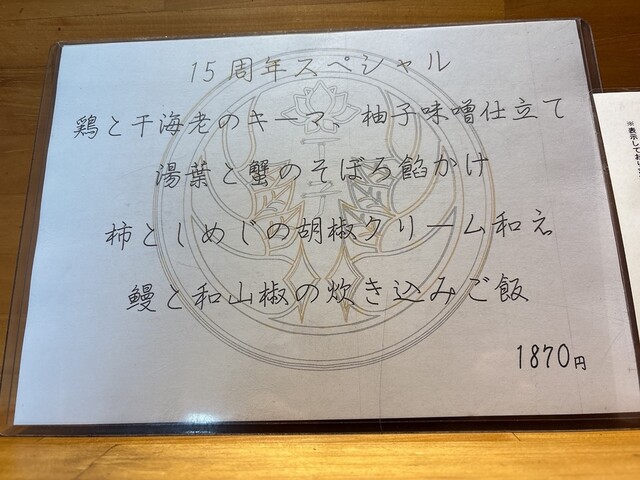 15周年スペシャル
鶏と干海老のキーマ、柚子味噌仕立て
湯葉と蟹のそぼろ餡かけ
柿としめじの胡椒クリーム和え
鰻と和山椒の炊き込みご飯
1870円